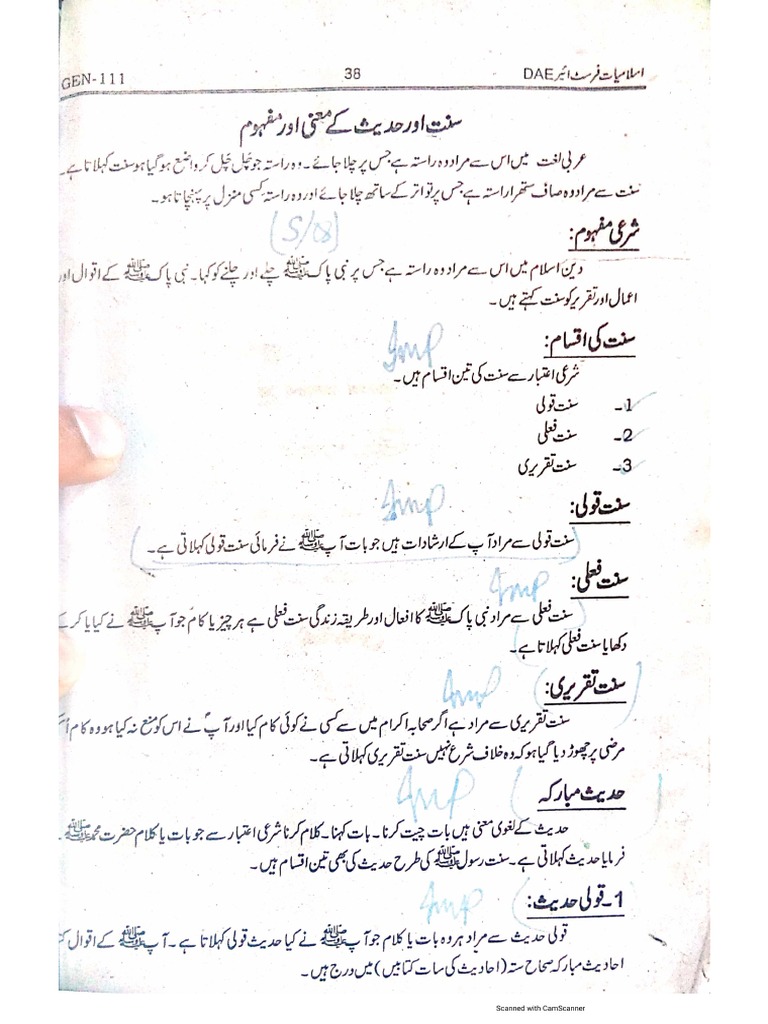 اسلامیات فرسٹ ائیر DAE 38 GEN-111
سنت اور حدیث کے معنی اور مفہوم
عربی لغت میں اس سے مراد وہ راستہ ہے جس پر چلا جائے۔ وہ راستہ جو چَل چَل کر واضع ہو گیا ہو سنت کہلاتا ہے۔
سنت سے مراد وہ صاف ستھرا راستہ ہے جس پر تواتر کے ساتھ چلا جائے اور وہ راستہ کسی منزل پر پہنچاتا ہو۔
شرعی مفہوم:
دین اسلام میں اس سے مراد وہ راستہ ہے جس پر نبی پاک ﷺ چلے اور چلنے کو کہا۔ نبی پاک ﷺ کے اقوال اور
اعمال اور تقریر کو سنت کہتے ہیں۔
سنت کی اقسام: Imp
شرعی اعتبار سے سنت کی تین اقسام ہیں۔
1۔ سنت قولی
2۔ سنت فعلی
3۔ سنت تقریری
سنت قولی: Imp
سنت قولی سے مراد آپ کے ارشادات ہیں جو بات آپ ﷺ نے فرمائی سنت قولی کہلاتی ہے۔
سنت فعلی: Imp
سنت فعلی سے مراد نبی پاک ﷺ کا افعال اور طریقہ زندگی سنت فعلی ہے ہر چیز یا کام جو آپ ﷺ نے کیا یا کر کے
دکھایا سنت فعلی کہلاتا ہے۔
سنت تقریری: Imp
سنت تقریری سے مراد ہے اگر صحابہ اکرام میں سے کسی نے کوئی کام کیا اور آپؐ نے اس کو منع نہ کیا ہو وہ کام
مرضی پر چھوڑ دیا گیا ہو کہ وہ خلاف شرع نہیں سنت تقریری کہلاتی ہے۔
حدیث مبارکہ Imp
حدیث کے لغوی معنی ہیں بات چیت کرنا۔ بات کہنا۔ کلام کرنا شرعی اعتبار سے جو بات یا کلام حضرت محمد ﷺ
فرمایا حدیث کہلاتی ہے۔ سنت رسول ﷺ کی طرح حدیث کی بھی تین اقسام ہیں۔
1۔ قولی حدیث: Imp
قولی حدیث سے مراد ہر وہ بات یا کلام جو آپ ﷺ نے کیا حدیث قولی کہلاتا ہے۔ آپ ﷺ کے اقوال
احادیث مبارکہ صحاح ستہ (احادیث کی سات کتابیں) میں درج ہیں۔
Scanned with CamScanner